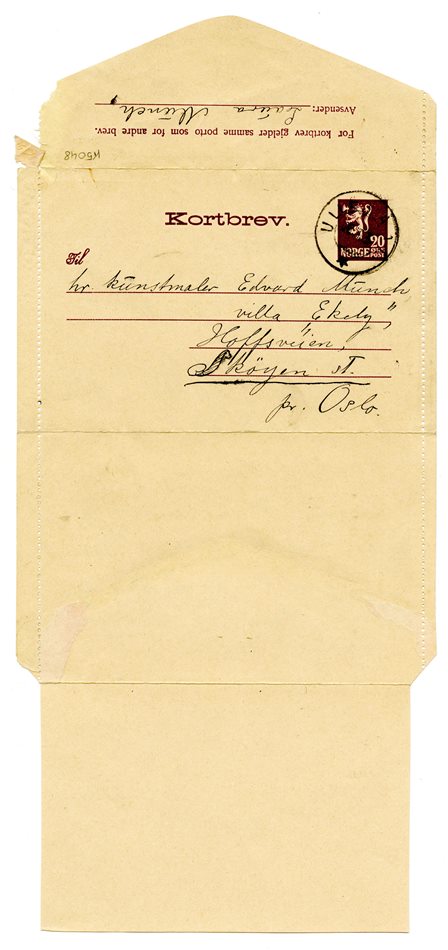 For kortbrev gjelder samme porto som for andre brev.
Avsender: Laura Munch,
K5048
Kortbrev.
20
NORGE
POST
Til
hr. kunstmaler Edvard Munch
villa Ekely"
Hoffsveien,
Skøyen st.
pr. Oslo.